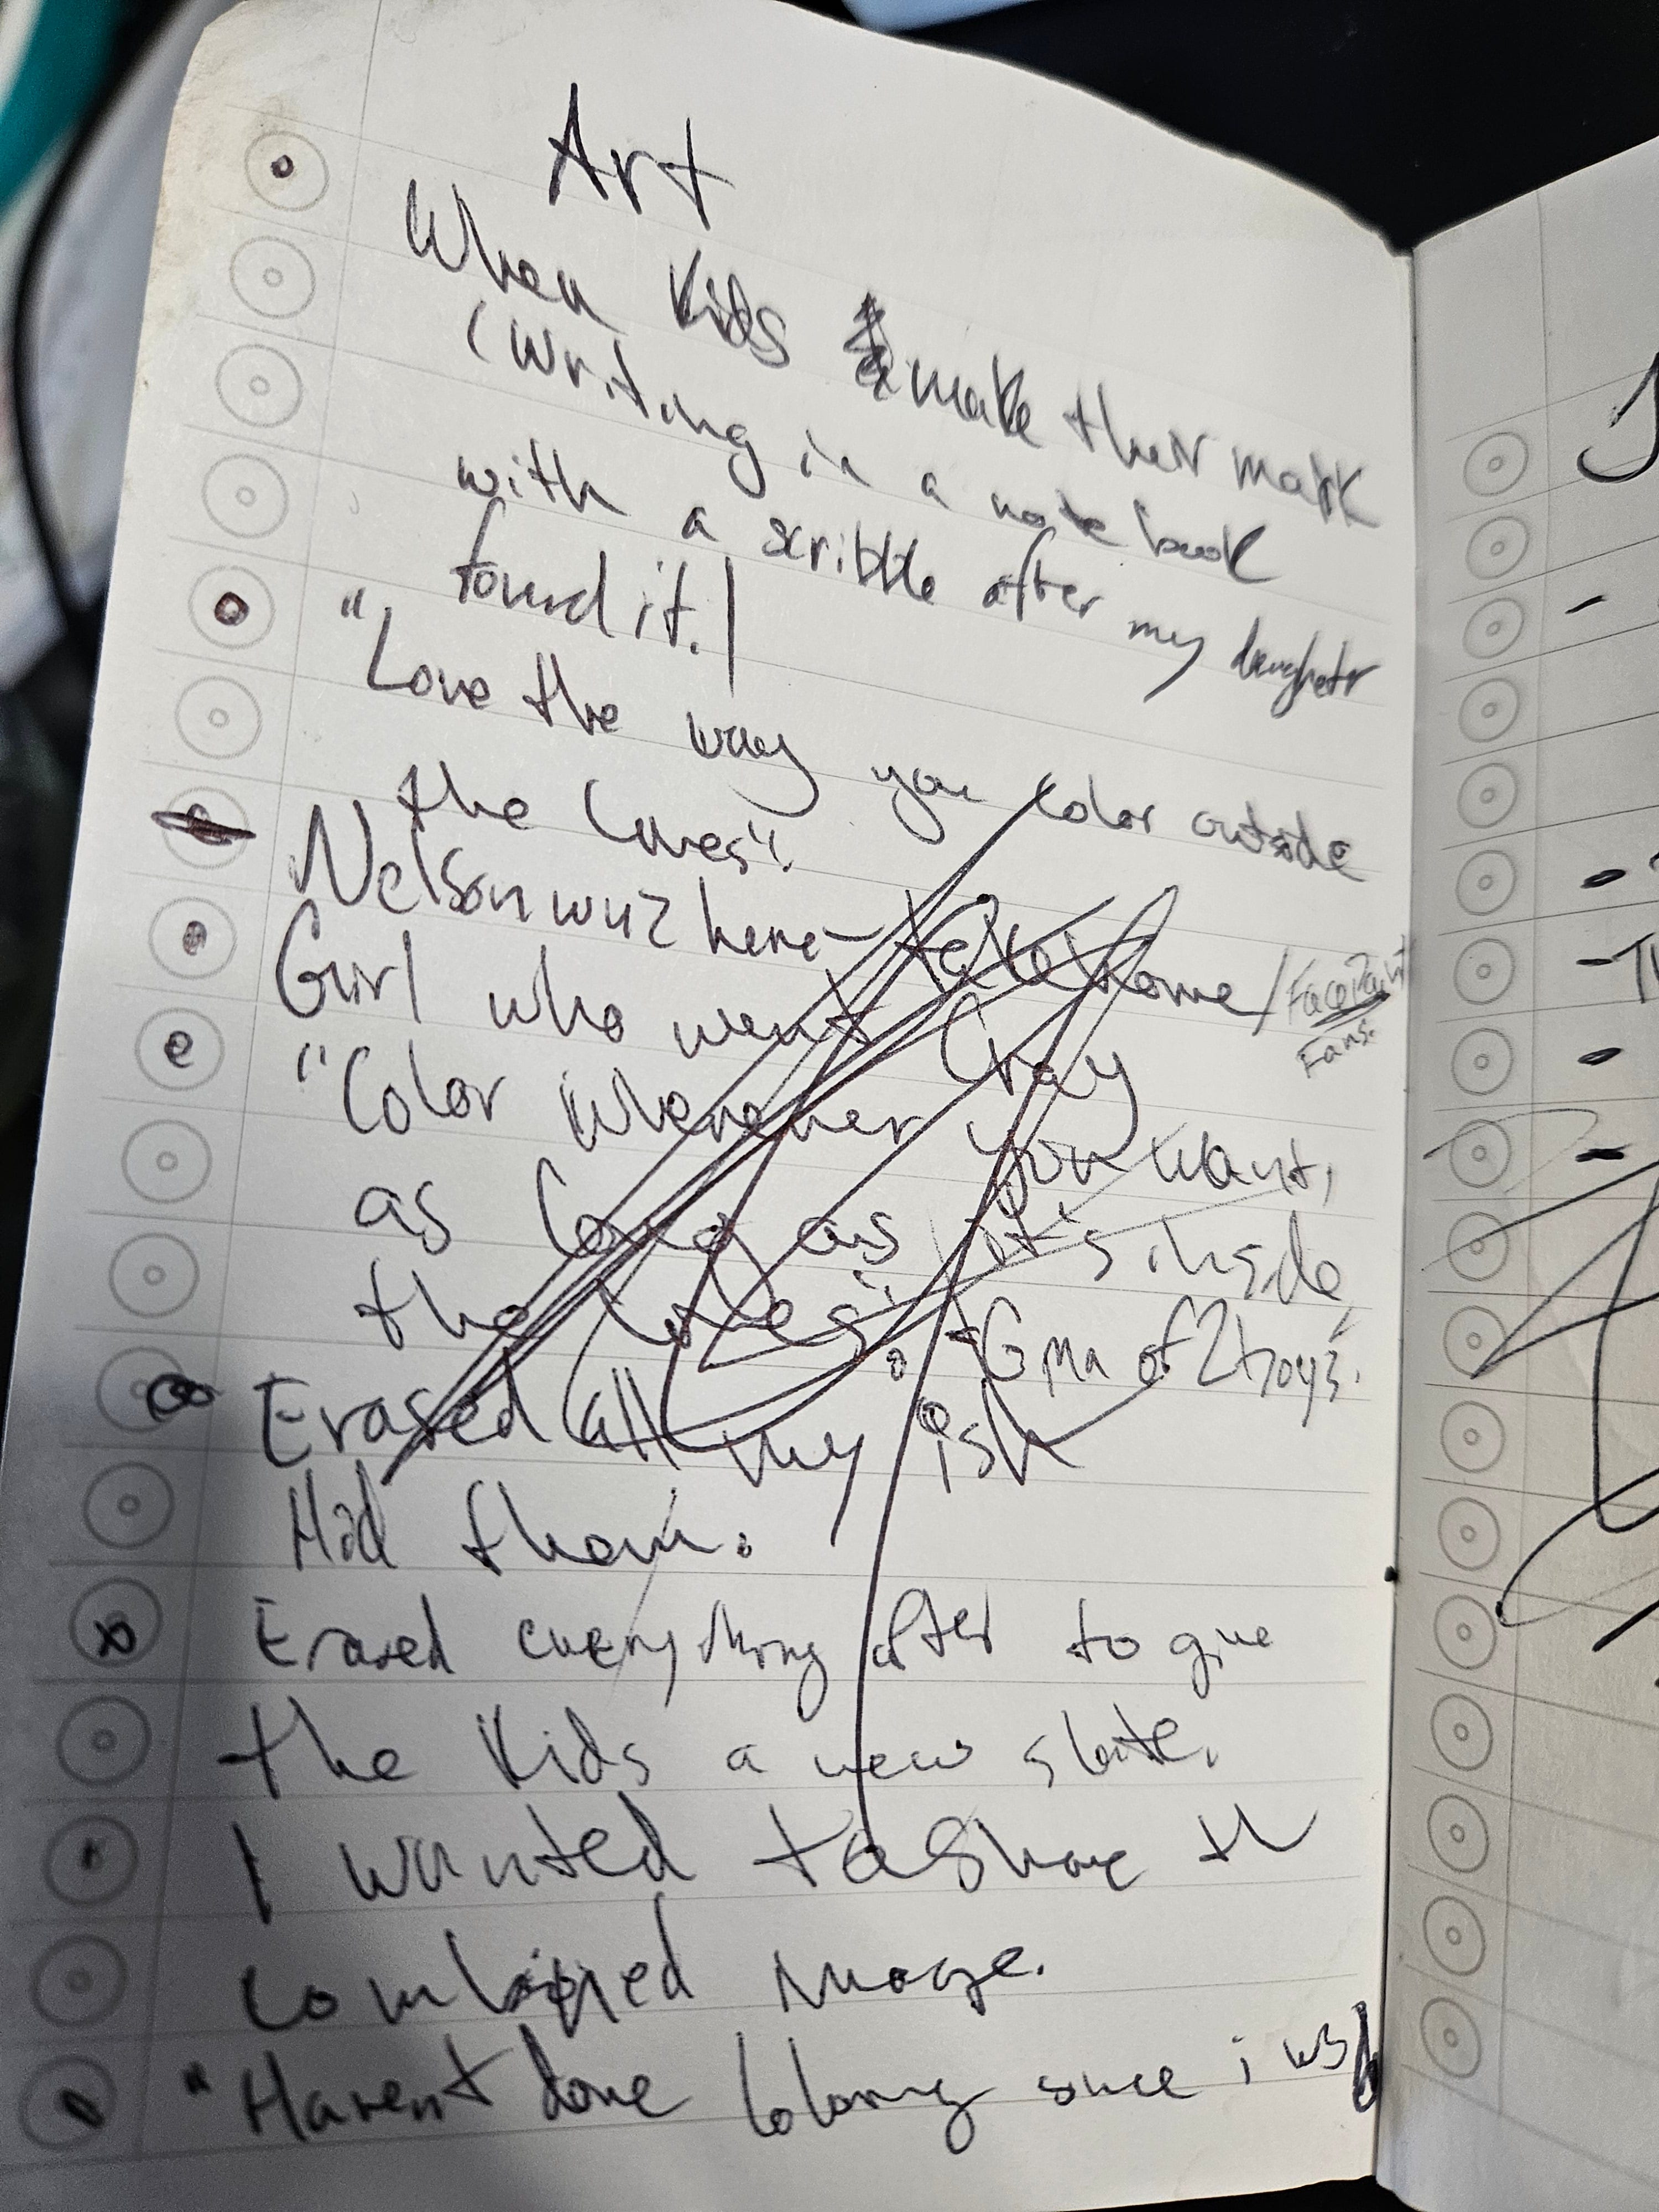 Art
When Kids make their mark
(Writing in a notebook
with a scribble after my daughetr
found it.)
"Love the way you color outside
the Lines".
Nelson wuz here - take home / FacePaint
Fans.
Girl who went Cray
"Color wherever you want,
as long as it's inside
the lines". - Gma of 2 boys.
Erased all my ish
Hid them.
Erased everything after to give
the Kids a new slate.
I wanted to Share th
combined image.
"Havent done Coloring since i wsb